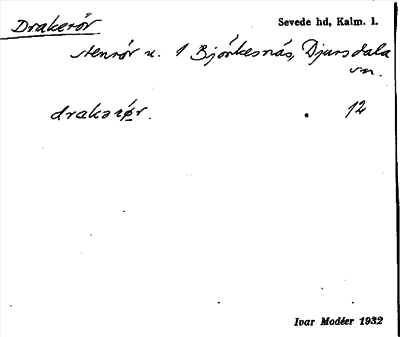 Drakerör
Sevede hd, Kalm. l.
stenrör u. 1 Björkesnäs, Djursdala
sn.
drakarör. 12
Ivar Modéer 1932